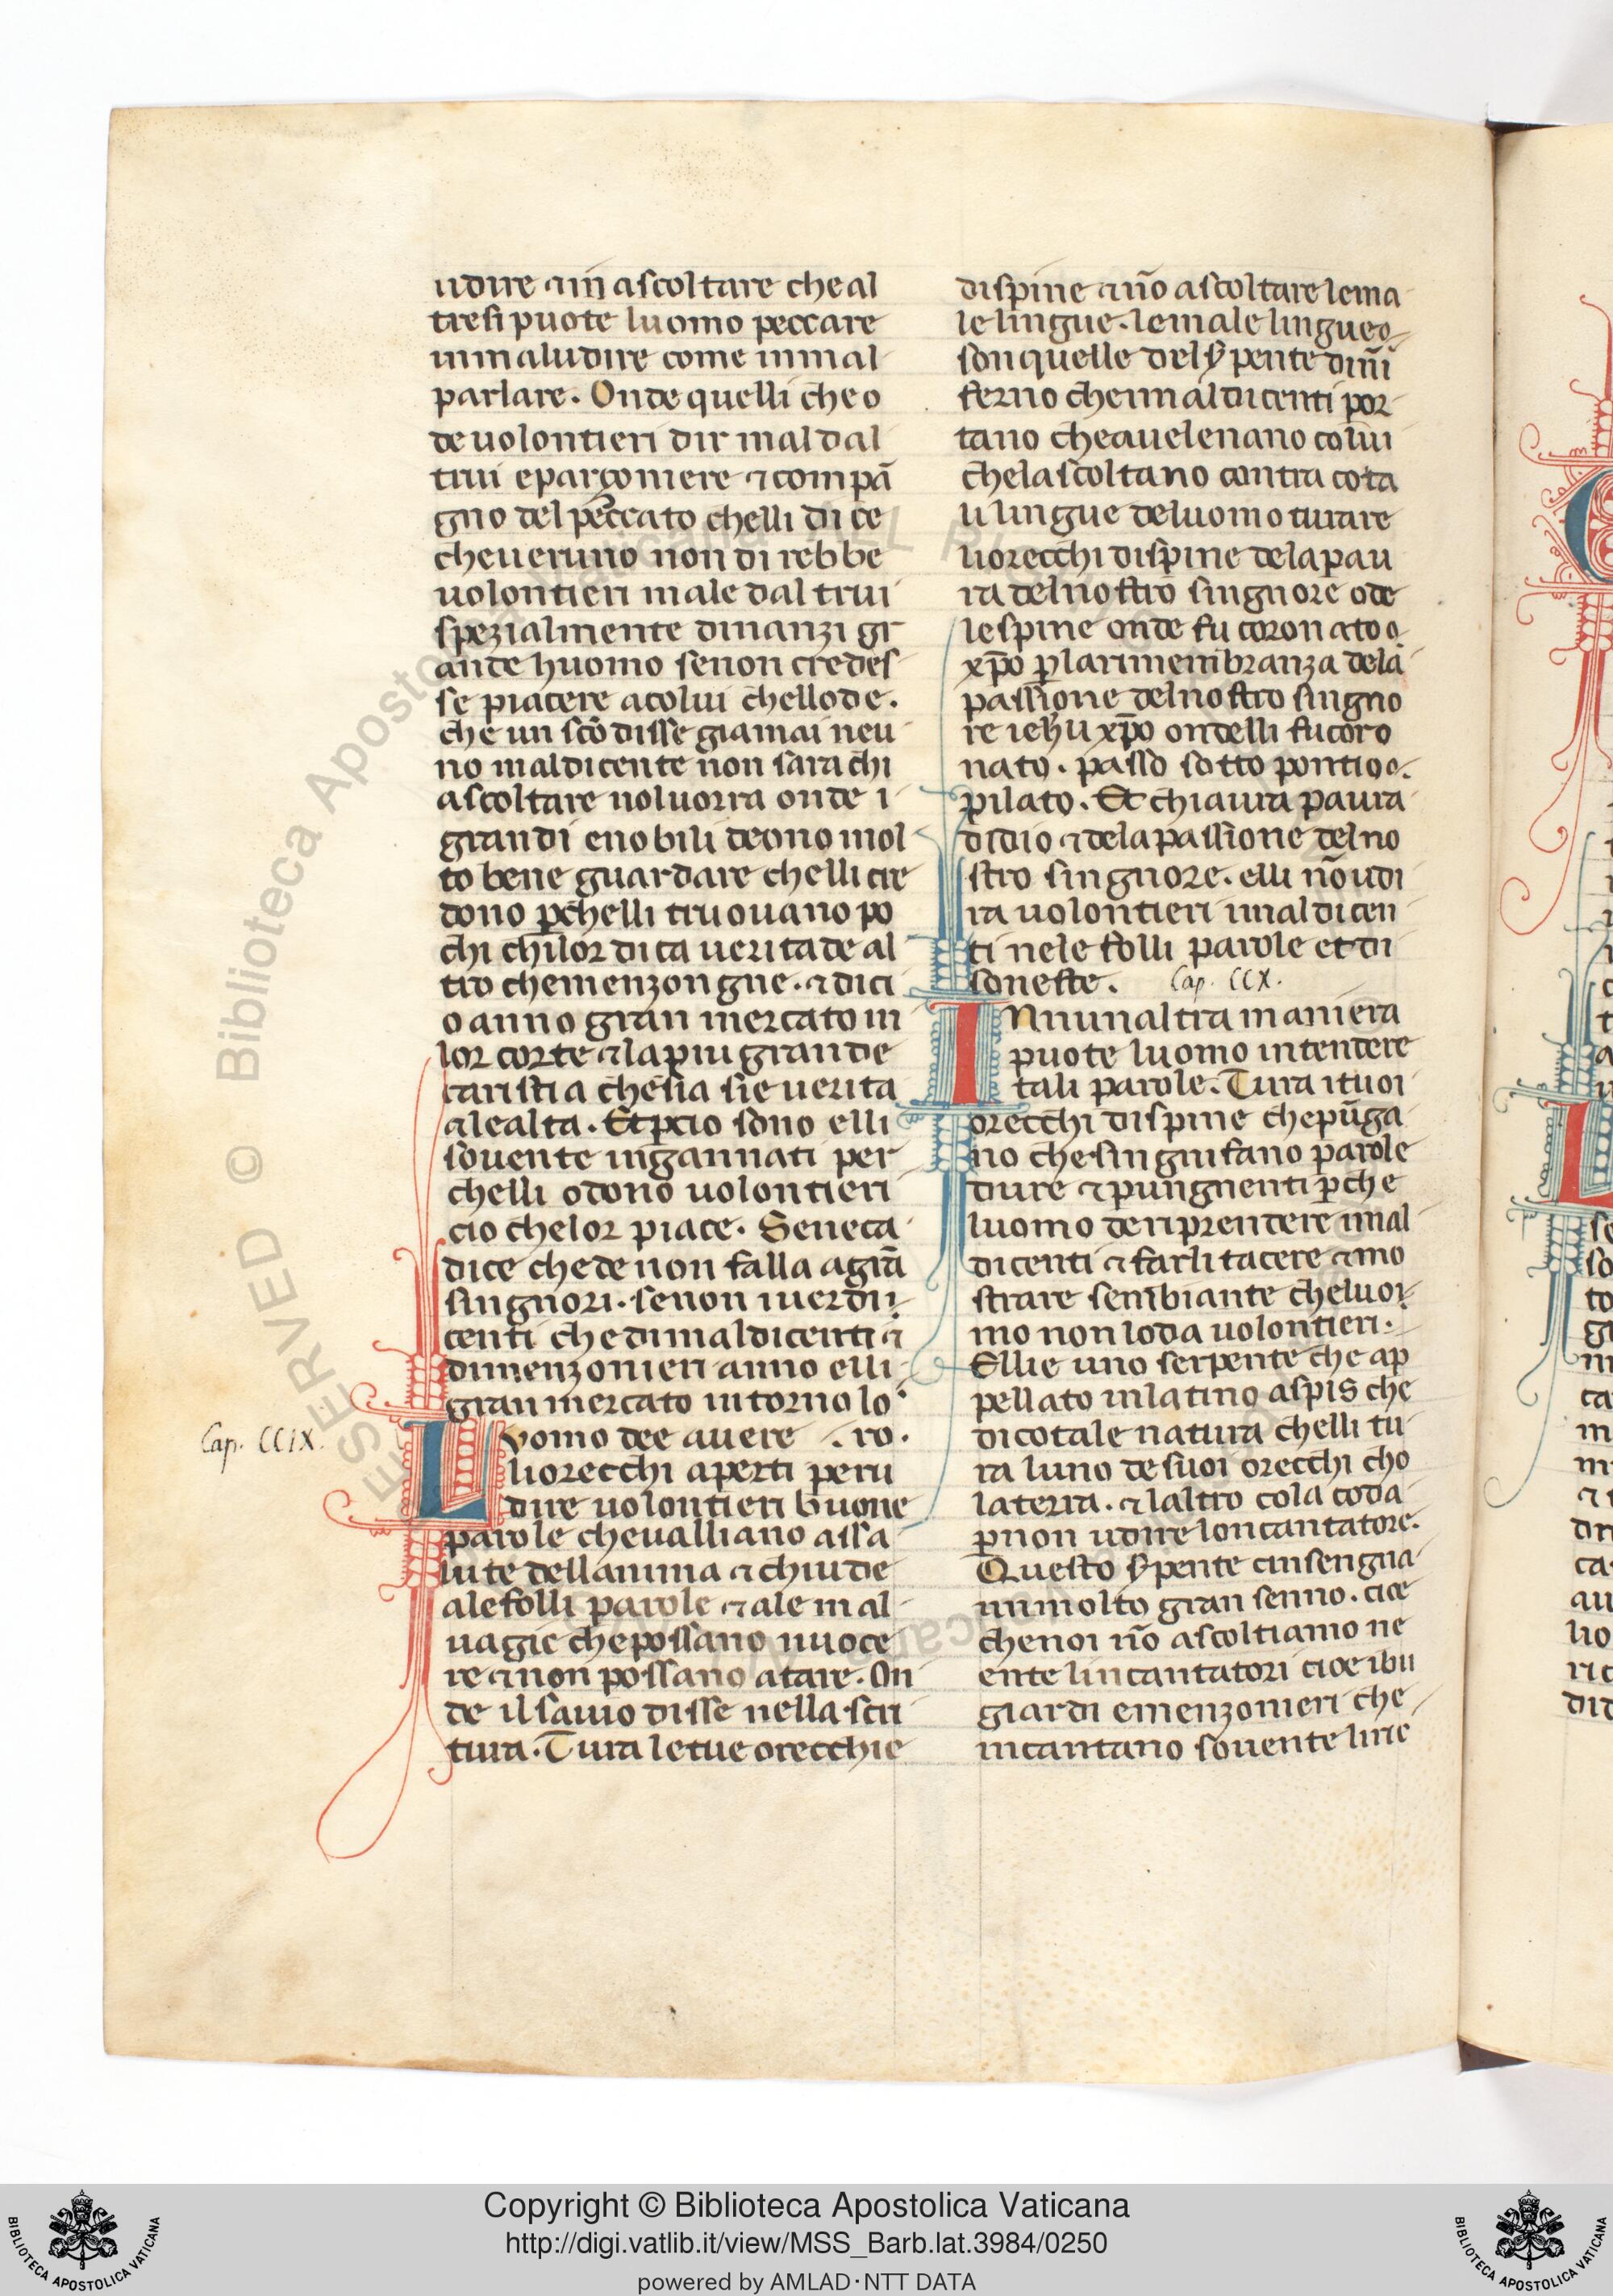 udire ⁊ in ascoltare che al
tresi puote luomo peccare
in maludire come in mal
parlare. Onde quelli che o
de uolontieri dir mal dal
trui e parçoniere ⁊ compā
gno del peccato chelli dice
che ueruno non direbbe
uolontieri male daltrui
spezialmente dinanzi gr
ande huomo senon credes
se piacere a colui chellode.
che un sc̄o disse giamai neu
no maldicente non sara chi
ascoltare nol uorra onde i
grandi e nobili deono mol
to bene guardare chelli cre
dono p̱chelli truouano po
chi chilor dica ueritade al
tro che menzongne. ⁊ dici
o anno gran mercato in
lor corte ⁊ la piu grande
caristia chesia sie uerita
⁊ lealta. Et p̱cio sono elli
souente ingannati per
chelli odono uolontieri
cio chelor piace. Seneca
dice che de non falla a grā
singnori. senon iuerdi
centi che di maldicenti ⁊
di menzonieri anno elli
gran mercato intorno lo
ro.
Cap. CCIX.
Luomo dee auere
li orecchi aperti per u
dire uolontieri buone
parole che uagliano a issa
lute dellanima ⁊ chiude
ale folli parole ⁊ ale mal
uagie che possano nuoce
re ⁊ non possano atare. On
de il sauio disse nella scri
tura. Tura le tue orecchie
di spine ⁊ nō ascoltare le ma
le lingue. le male lingue
son quelle del s̱pente dinī
ferno che i maldicenti por
tano che auelenano colui
che lascoltano contra cota
li lingue de luomo turare
li orecchi di spine dela pau
ra del nostro singnore o de
le spine onde fu coronato
xp̄o p̱ la rimenbranza dela
passione del nostro singno
re iehu xp̄o ondelli fu coro
nato. passo sotto pontio
pilato. Et chi aura paura
di dio ⁊ dela passione del no
stro singnore. elli nō udi
ra uolontieri i maldicen
ti nele folli parole et di
soneste.
Cap. CCX.
INn unaltra maniera
puote luomo intendere
tali parole. Tura i tuoi
orecchi di spine che pūga
no che singnifano parole
dure ⁊ pungnenti p̱che
luomo de riprendere i mal
dicenti ⁊ farli tacere ⁊ mo
strare sembiante cheluo
mo non loda uolontieri.
Ellie uno serpente che ap
pellato in latino aspis che
di cotale natura chelli tu
ra luno de suoi orecchi cho
la terra. ⁊ laltro cola coda
p̱ non udire loncantatore.
Questo s̱pente cinsengna
un molto gran senno. cioe
che noi nō ascoltiamo ne
ente lincantatori cioe i bu
giardi e menzonieri che
incantano souente liric